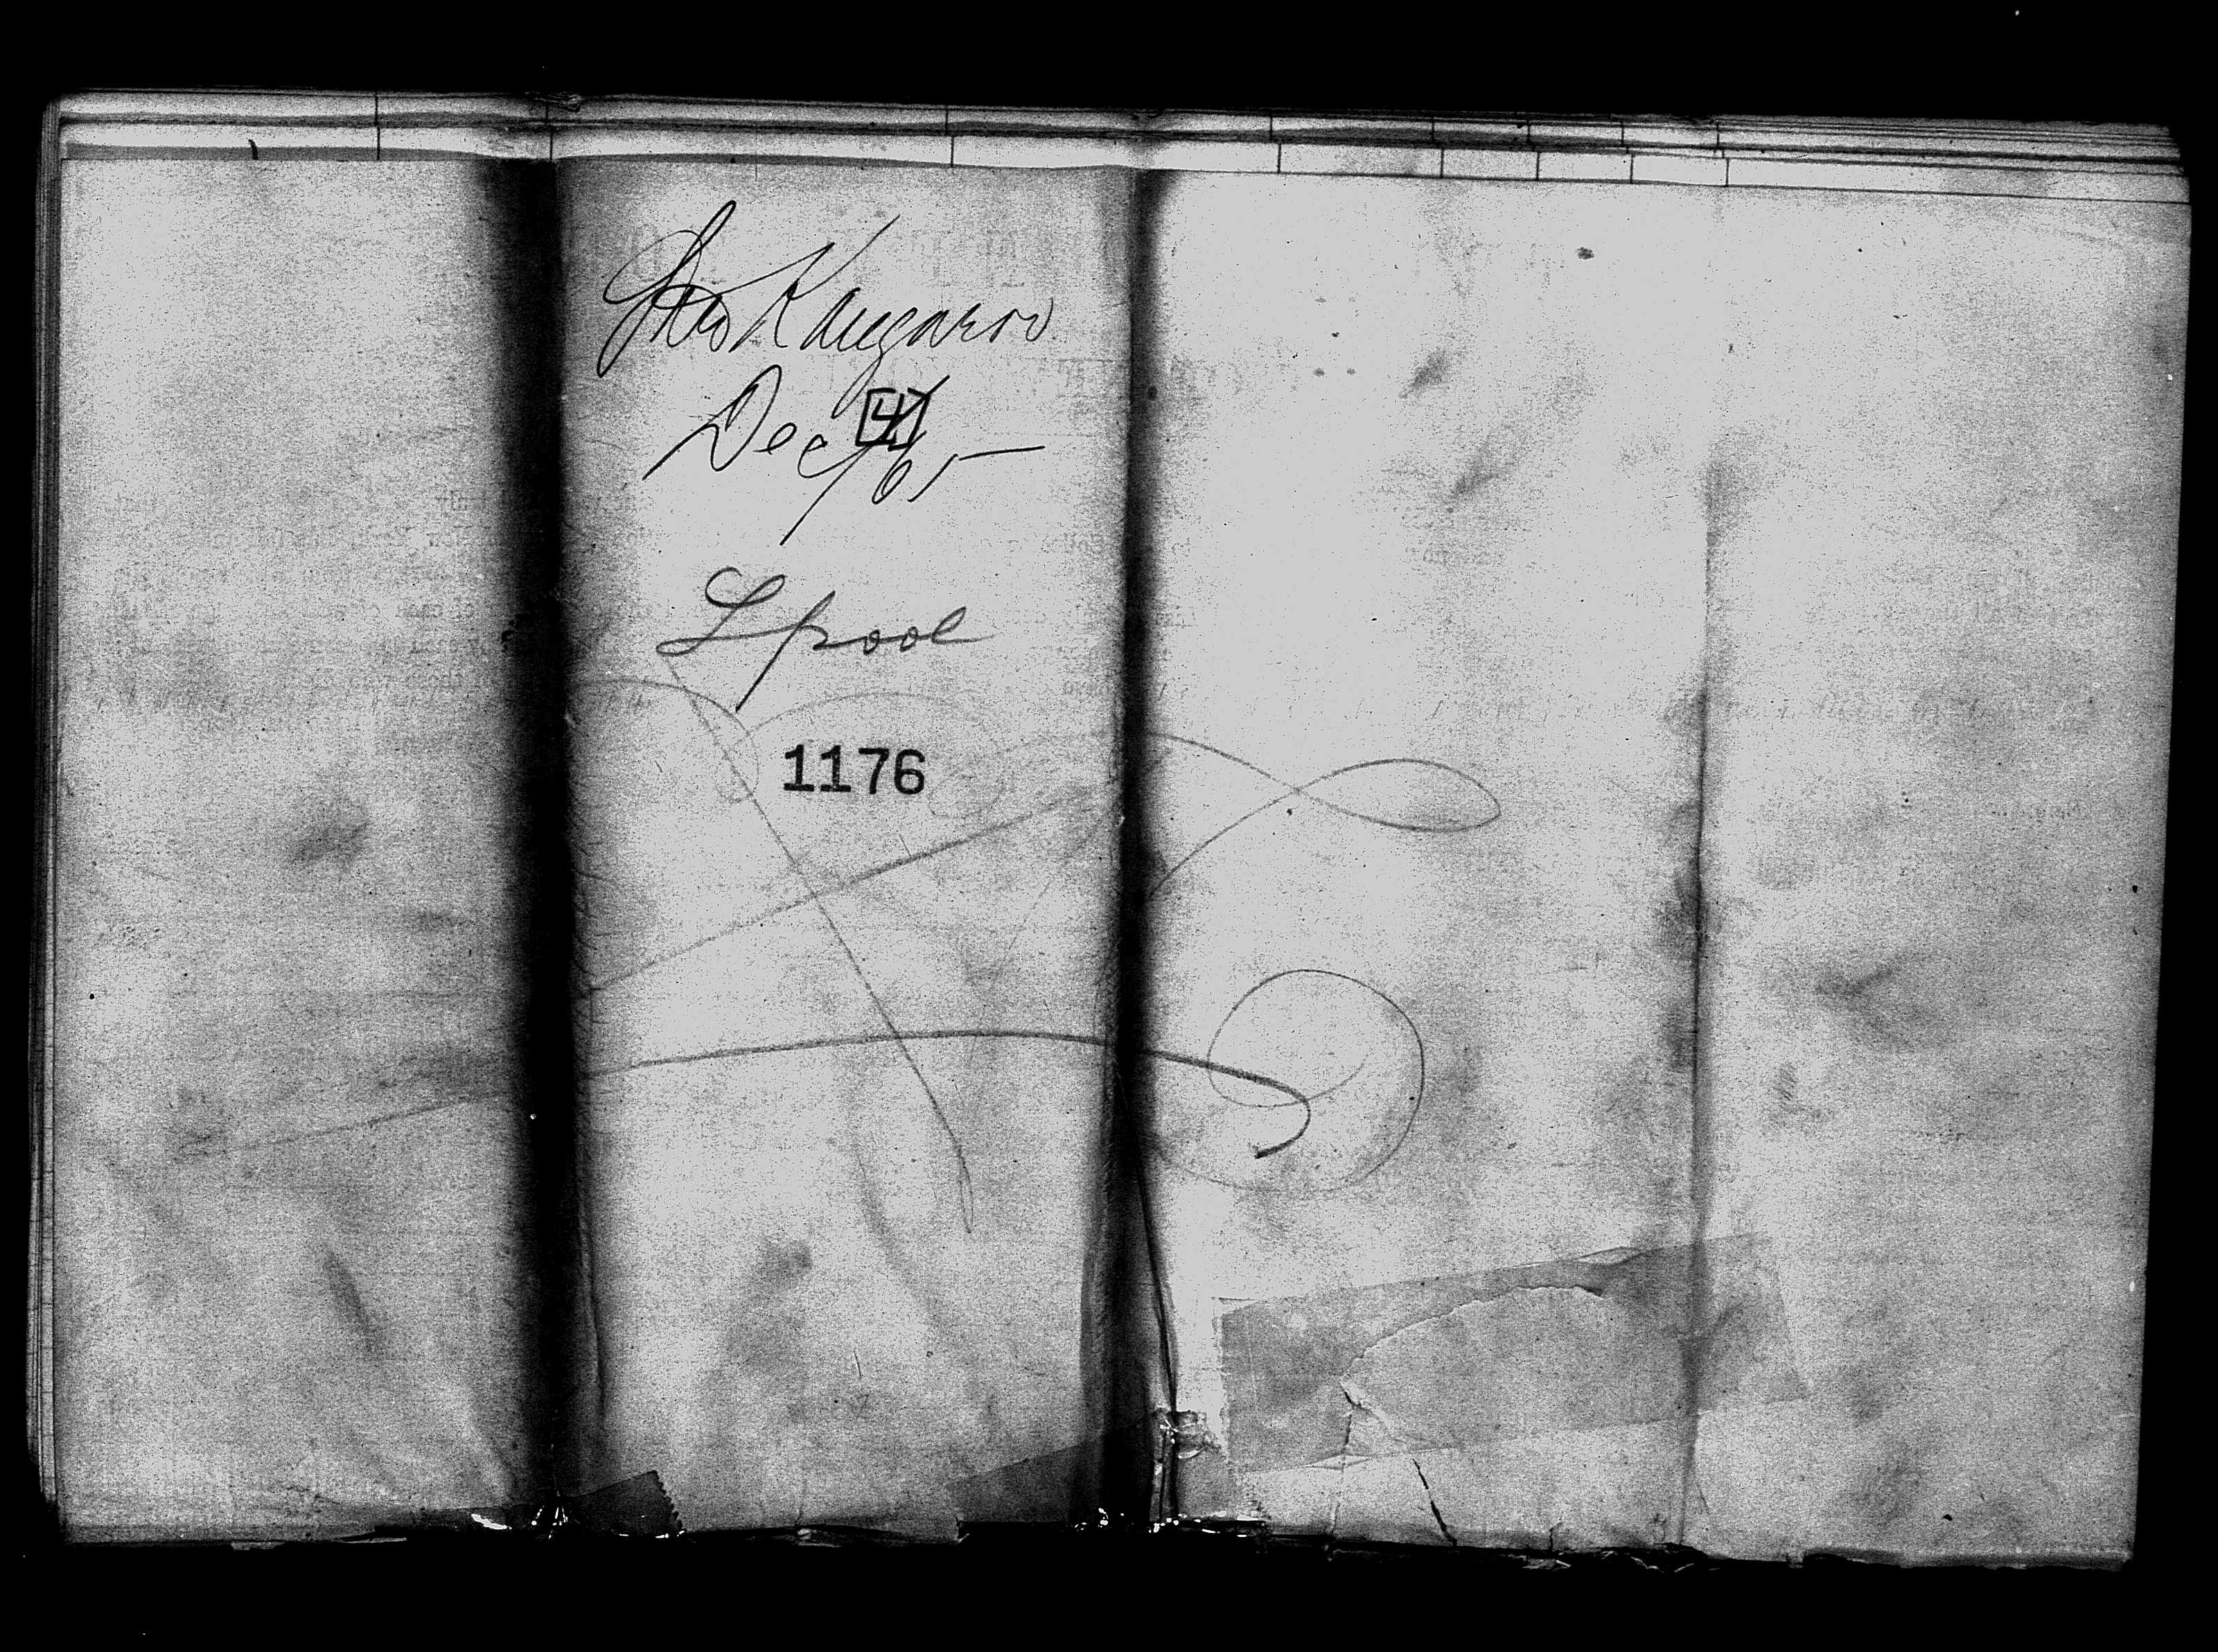 Str Kangaroo
Dec 4/65
Lpool
1176